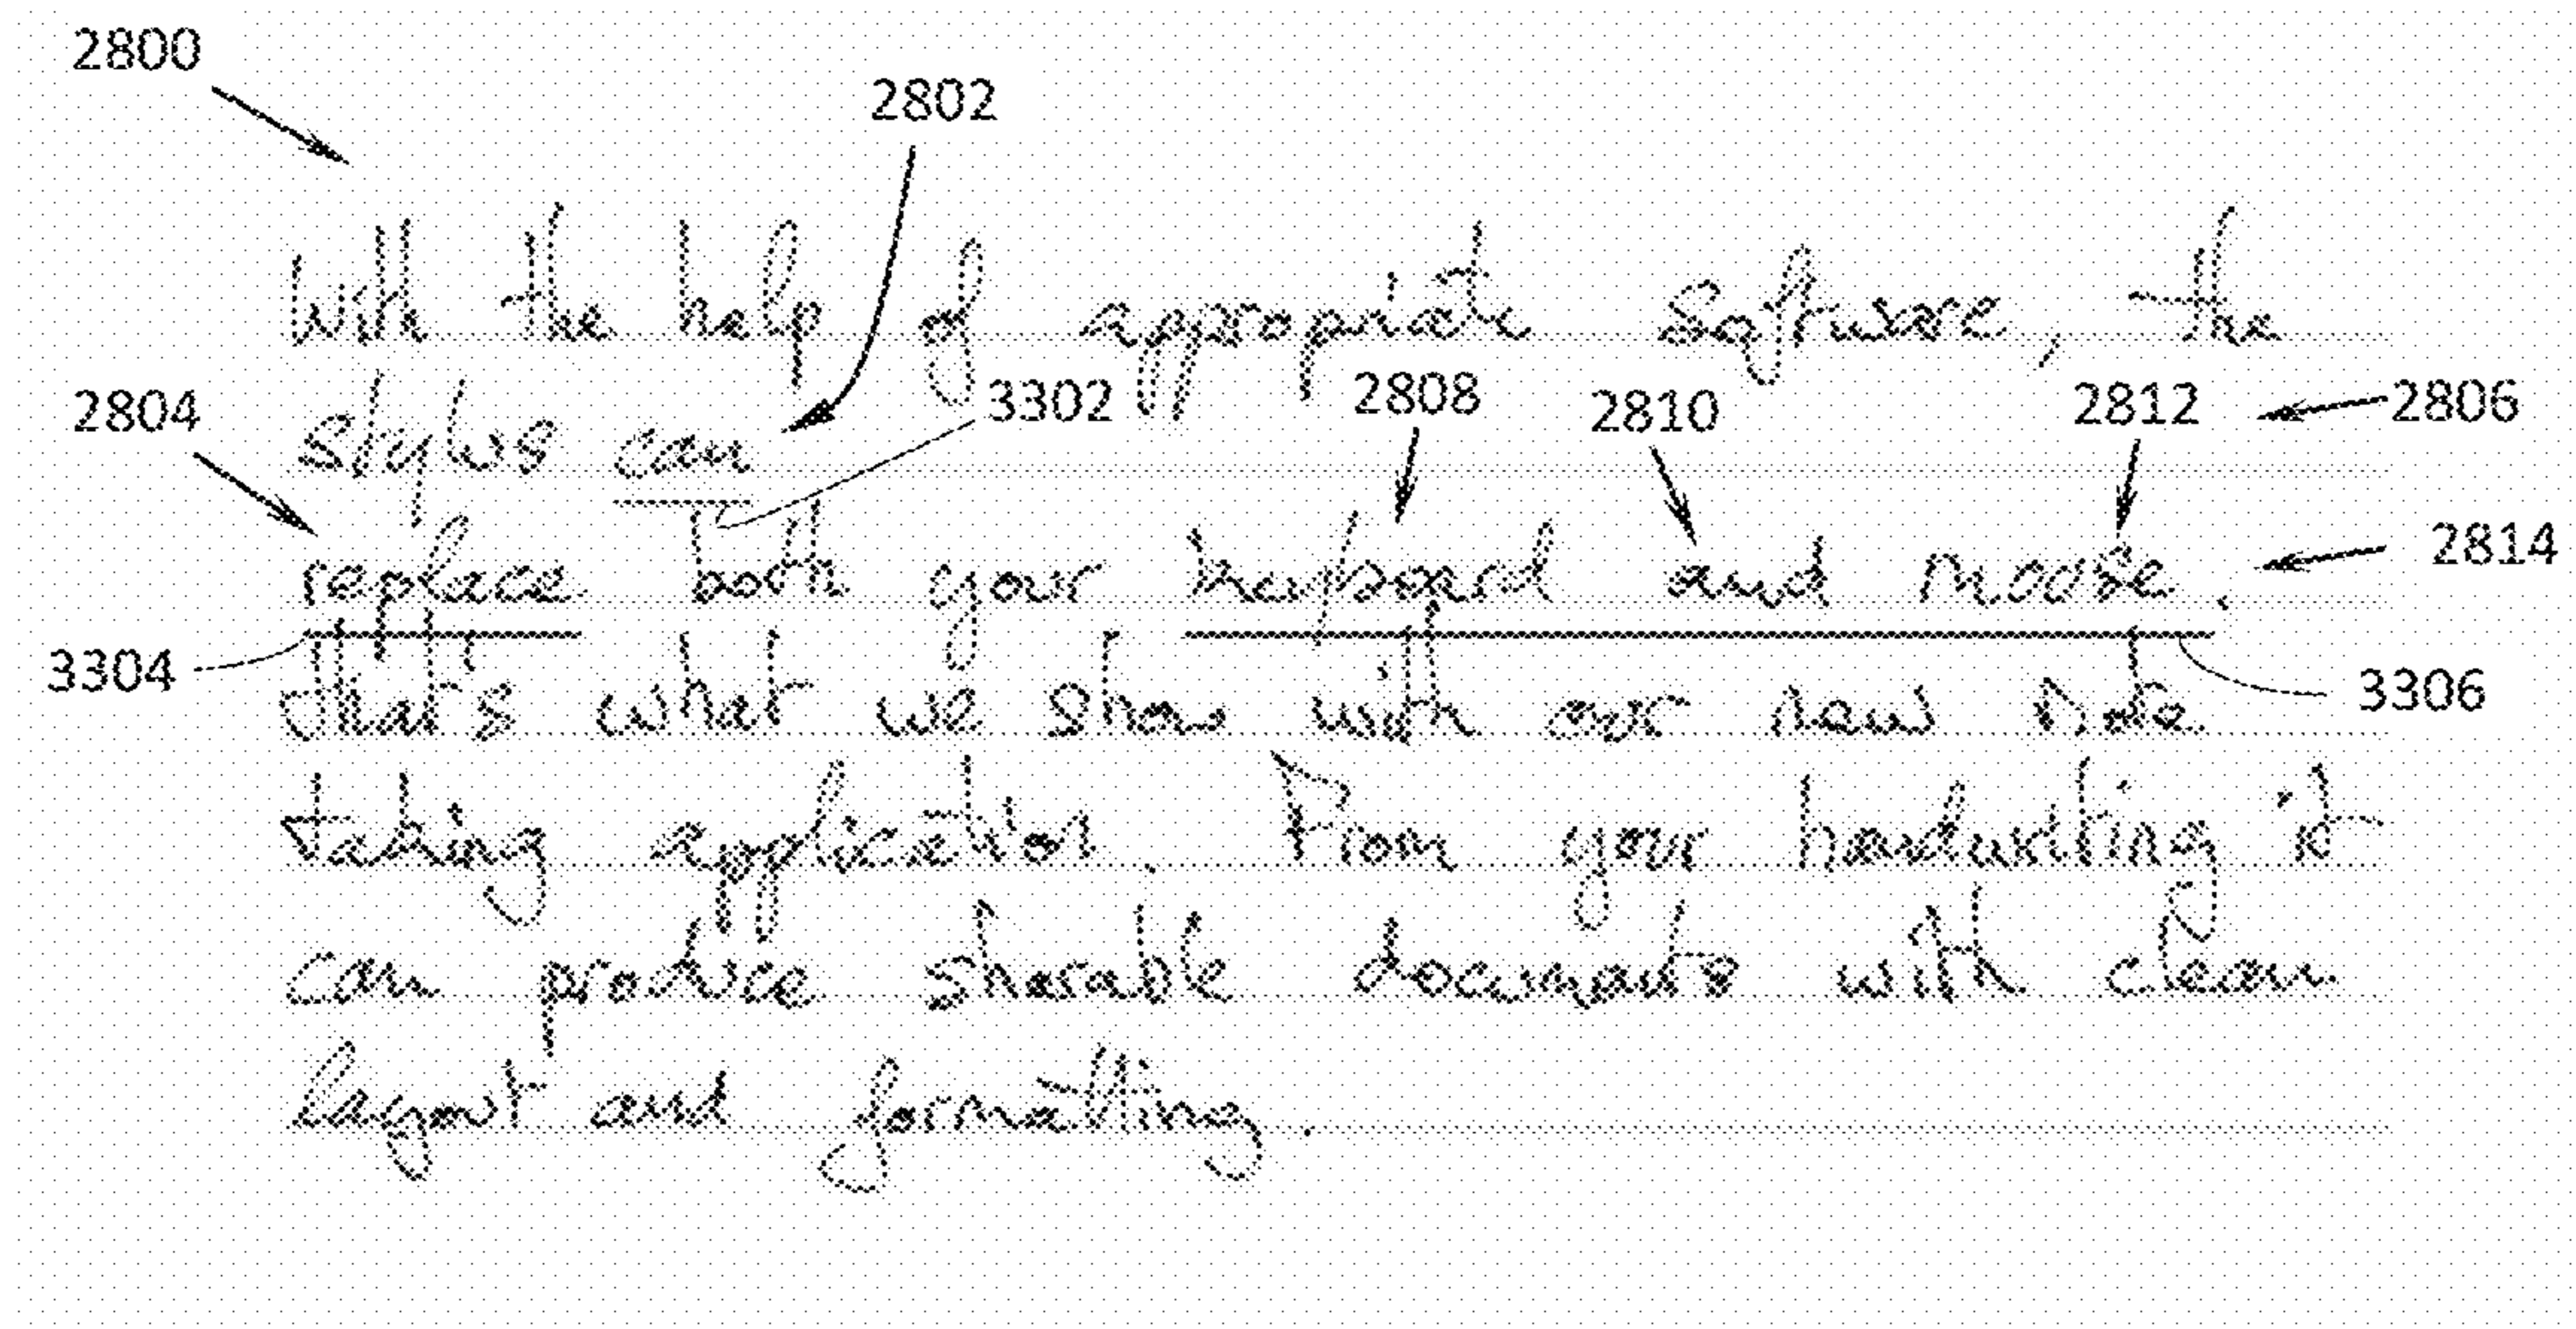 2800
2802
With the help of appropriate Software, the
2804 3302 2808 2810 2812 2806
stylus can
replace both your keyboard and mouse. 2814
3304 3306
that's what we show with our new Note
taking application. From your handwriting it
can produce sharable documents with clean
layout and formatting.